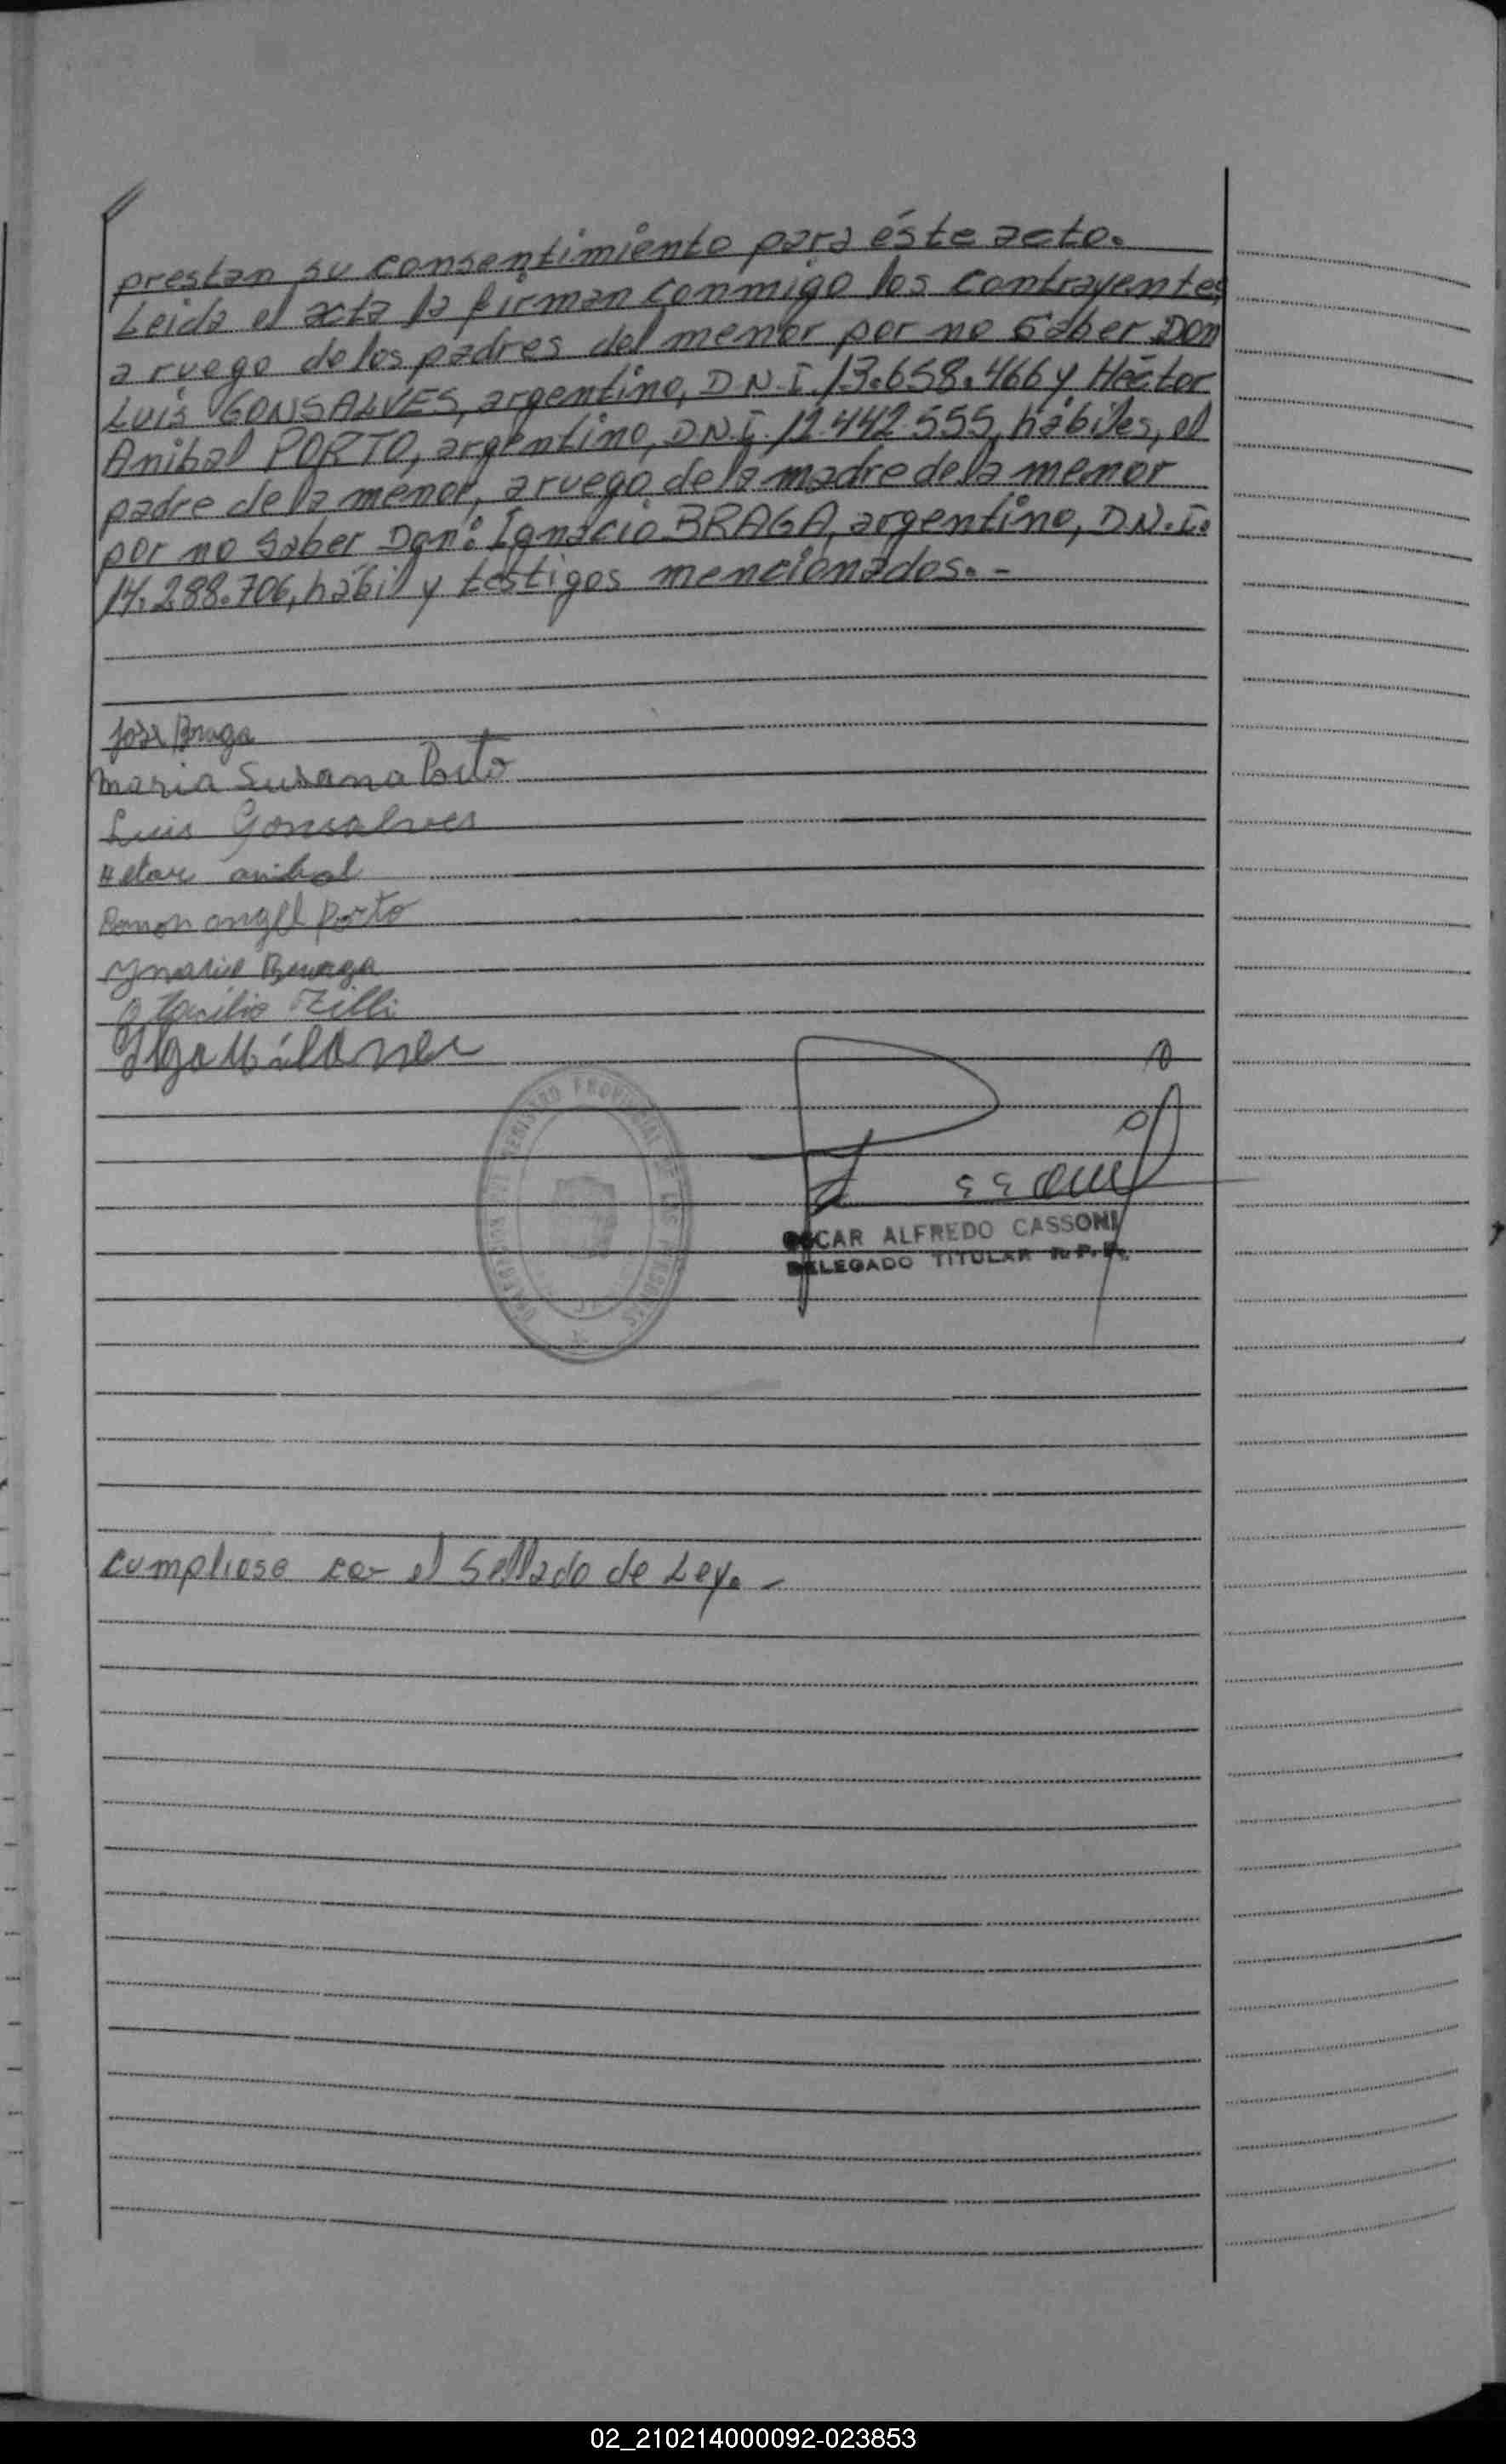 prestan su consentimiento para éste acto.
Leida el acta la firman conmigo los contrayentes,
a ruego de los padres del menor por no saber Don
Luis GONSALVES, argentino, D.N.I. 13.658.466 y Héctor
Anibal PORTO, argentino, D.N.I. 12.442.555, hábiles, el
padre de la menor, a ruego de la madre de la menor
por no saber Don: Ignacio BRAGA, argentino, D.N.I.
14.288.706, hábil y testigos mencionados.-
José Braga
Maria Susana Porto
Luis Gonsalves
Hetor anibal
Ramon angel Porto
Ynasio Braga
Zilli
REGISTRO PROVINCIAL DE LAS PERSONAS
OSCAR ALFREDO CASSONI
DELEGADO TITULAR R.P.P.
Cumpliose con el Sellado de Ley. -
02_210214000092-023853